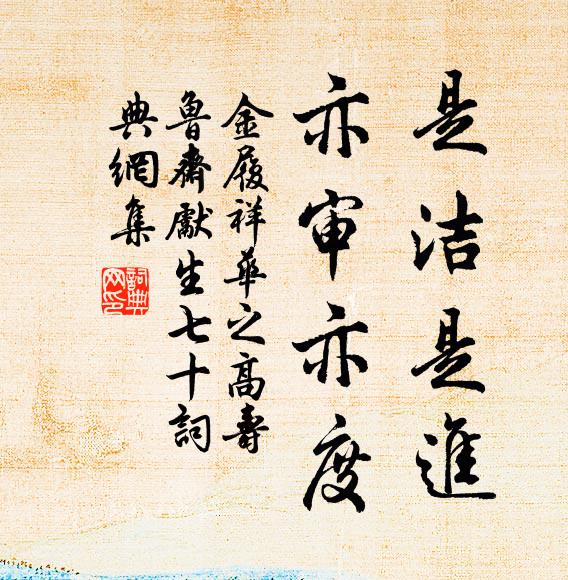 是洁是進
亦审亦度
金履祥華之高壽
魯齋獻生七十詞
典網集
詞典网印